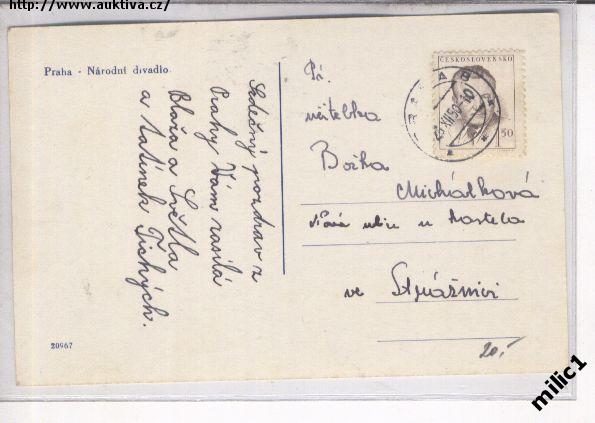 http://www.auktiva.cz/
Praha - Národní divadlo
Srdečný pozdrav z
Prahy Vám zasílá
Blaža a Světla
a tatínek Tichých.
ČESKOSLOVENSKO
PRAHA
XII 50 - 10
50
Pí.
učitelka
Božka
Michálková
Nová ulice u kostela
ve Strážnici
20967
20.-
milic1